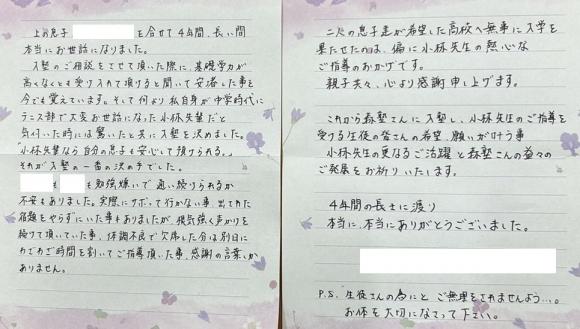 上の息子 を合せて4年間、長い間
本当にお世話になりました。
入塾のご相談をさせて頂いた際に、基礎学力が
高くなくとも受け入れて頂けると聞いて安堵した事を
今でも覚えています。そして何より私自身が中学時代に
テニス部で大変お世話になった小林先輩だと
気付いた時には驚いたと共に入塾を決めました。
"小林先輩なら自分の息子も安心して預けられる。"
それが入塾の一番の決め手でした。
も も勉強嫌いで通い続けられるか
不安もありました。実際にサボって行かない事、出された
宿題をやらずにいた事もありましたが、根気強く声かけを
続けて頂いていた事、体調不良で欠席した分は別日に
わざわざ時間を割いてご指導頂いた事、感謝の言葉しか
ありません。
二人の息子達が希望した高校へ無事に入学を
果たせたのは、偏に小林先生の熱心な
ご指導のおかげです。
親子共々、心より感謝申し上げます。
これから森塾さんに入塾し、小林先生のご指導を
受ける生徒の皆さんの希望、願いが叶う事
小林先生の更なるご活躍と森塾さんの益々の
ご発展をお祈りいたします。
4年間の長きに渡り
本当に、本当にありがとうございました。
P.S. 生徒さんの為にと ご無理をされませんよう…。
お体を大切になさって下さい。